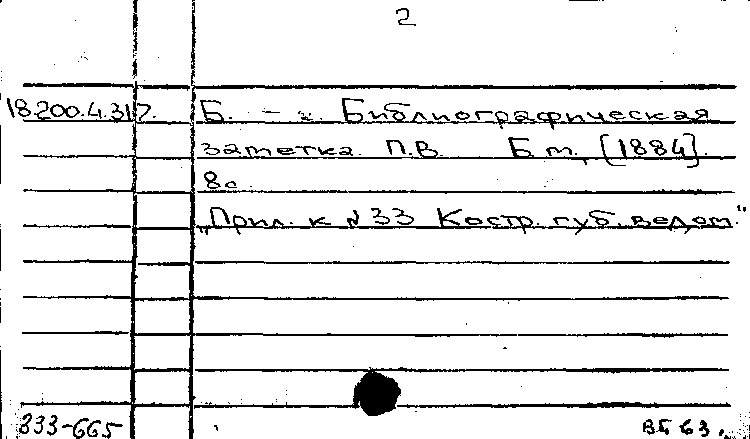 2
18.200.4.317. Б. – г. Библиографическая
заметка. П.В. Б.м., [1884].
8с.
„Прил. к №33 Костр. губ. ведом."
333-665 ВБ 63.